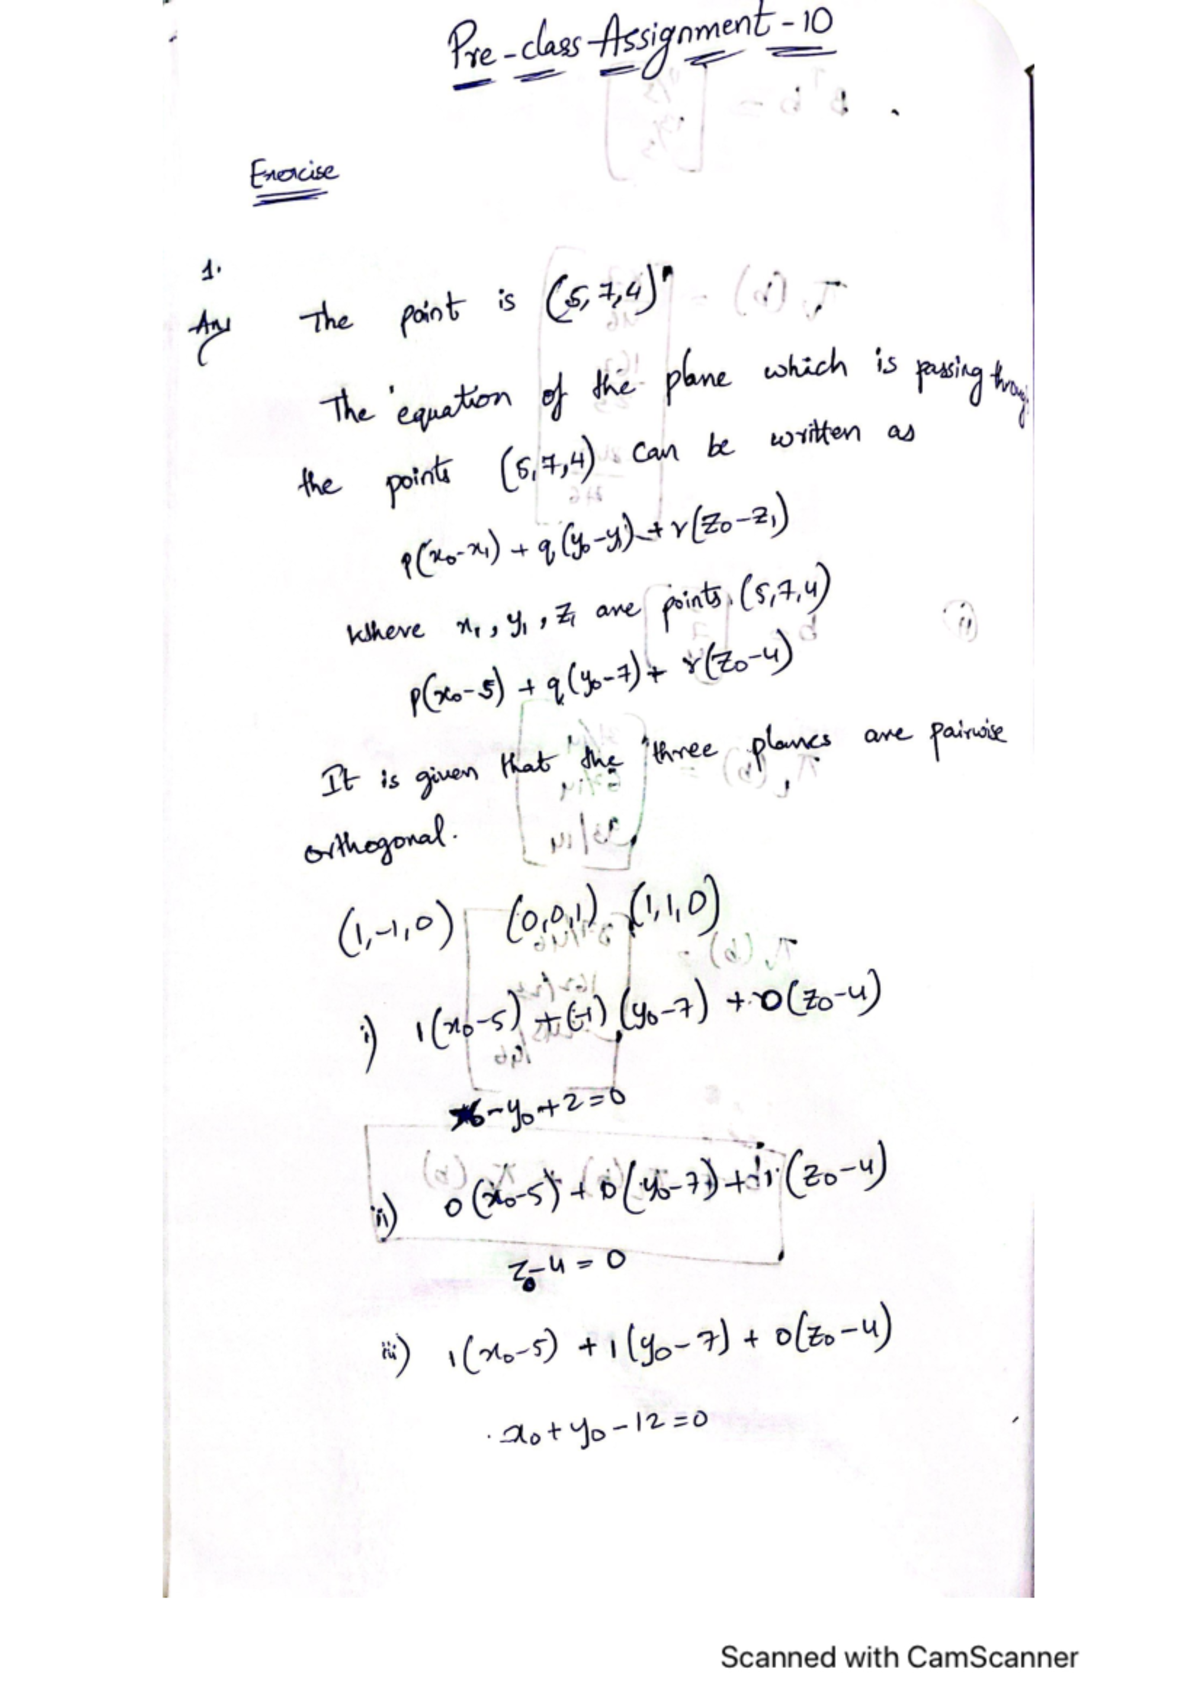 Pre-class-Assignment-10
Exercise
1.
Ans The point is (5,7,4)
The equation of the plane which is passing throug
the points (5,7,4) can be written as
p(x₀-x₁) + q(y₀-y₁) + r(z₀-z₁)
Where x₁, y₁, z₁ are points (5,7,4)
p(x₀-5) + q(y₀-7) + r(z₀-4)
It is given that the three planes are pairwise
orthogonal.
(1,-1,0) (0,0,1) (1,1,0)
i) 1(x₀-5) + (-1)(y₀-7) + 0(z₀-4)
x₀-y₀+2=0
ii) 0(x₀-5) + 0(y₀-7) + 1(z₀-4)
z₀-4=0
iii) 1(x₀-5) + 1(y₀-7) + 0(z₀-4)
x₀+y₀-12=0
Scanned with CamScanner